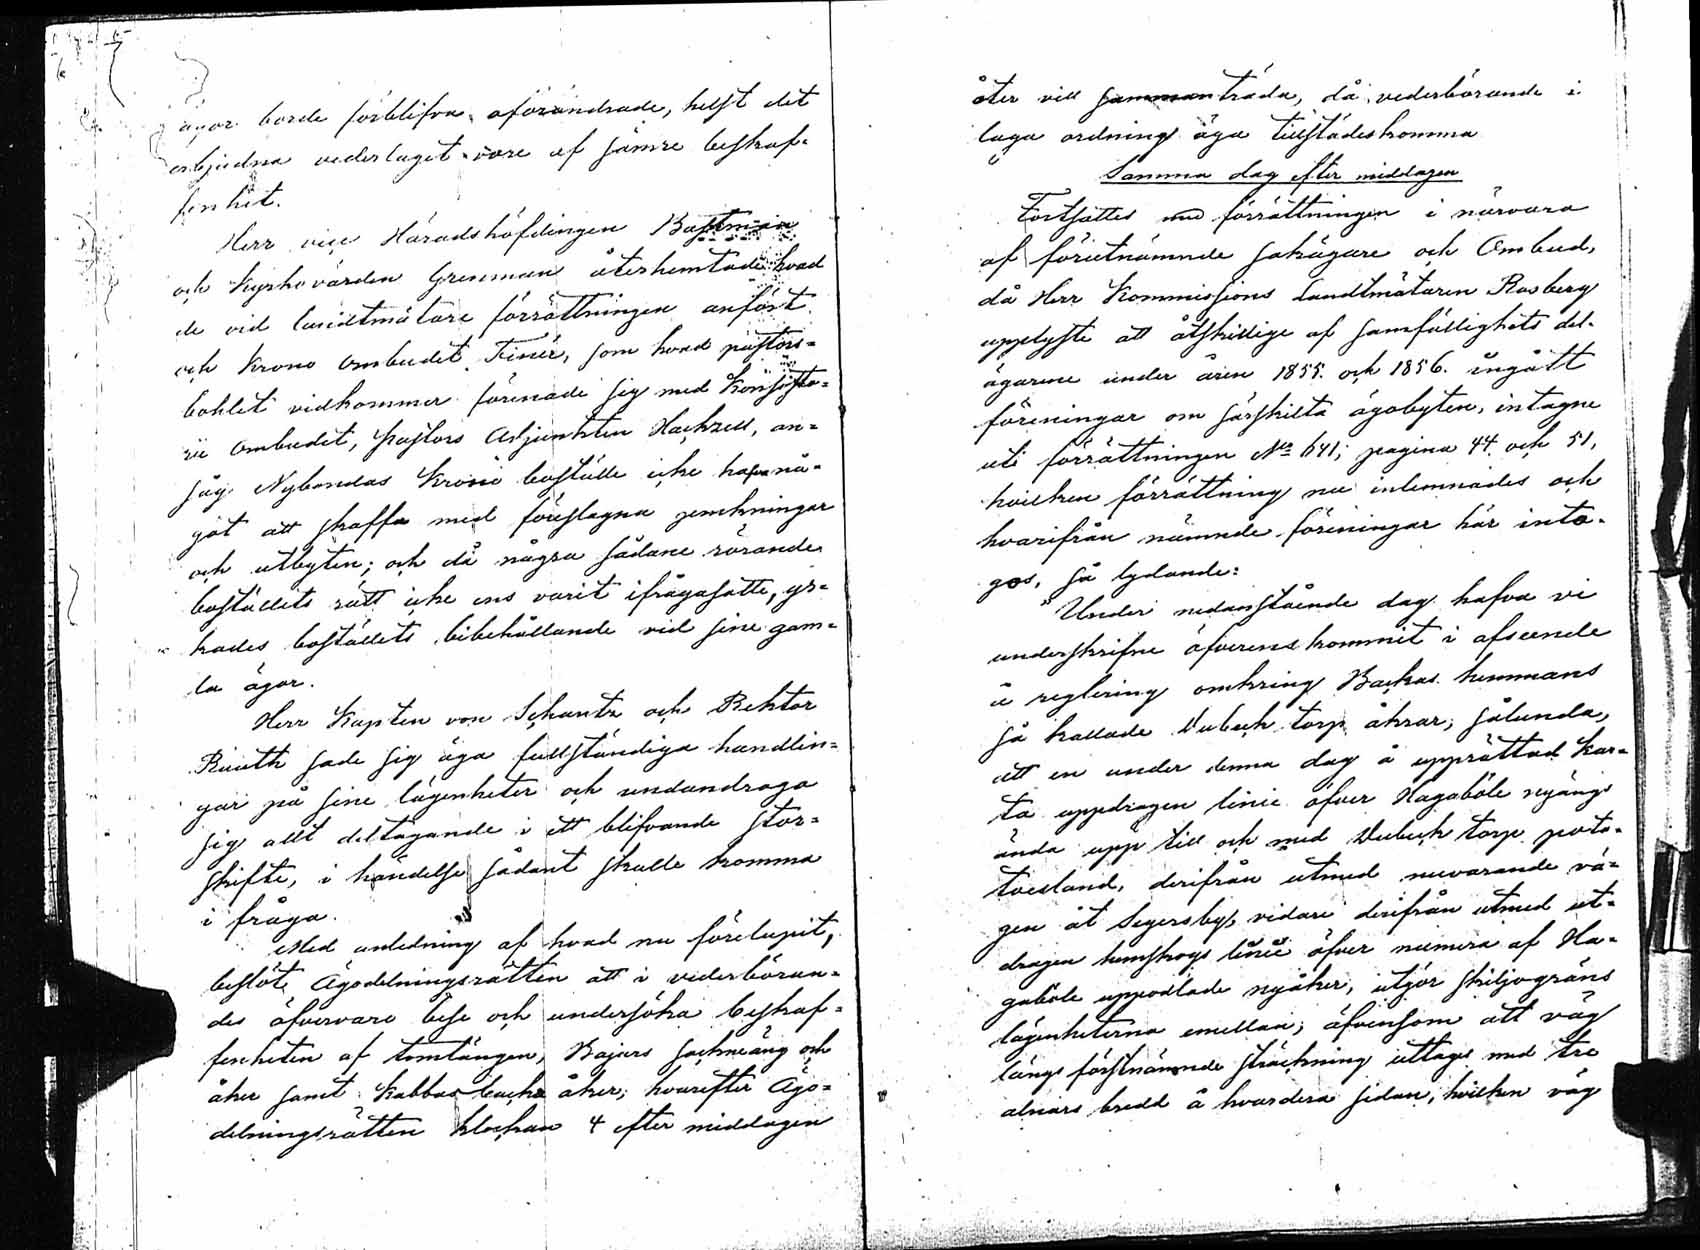 ägor borde förblifva oförändrade, helst det
erbjudna vederlaget vore af sämre beskaf-
fenhet.
Herr vice Häradshöfdingen Bastman
och Kyrkovärden Grenman återhemtade hvad
de vid landtmätare förrättningen anfört
och Krono ombudet Finér, som hvad pastors-
bohlet vidkommer förenade sig med Konsisto-
rii ombudet, Pastors Adjunkten Hackzell, an-
såg Nybondas Krono boställe icke hafva nå-
got att skaffa med föreslagna jemkningar
och utbyten; och då några sådane rörande
boställets rätt icke ens varit ifrågasatte, yr-
kades boställets bibehållande vid sine gam-
la ägor.
Herr Kapten von Schantz och Rektor
Ruuth sade sig äga fullständiga handlin-
gar på sine lägenheter och undandraga
sig allt deltagande i ett blifvande stor-
skifte, i händelse sådant skulle komma
i fråga.
Med anledning af hvad nu förelupit,
beslöt Ägodelningsrätten att i vederböran-
des öfvervaro bese och undersöka beskaf-
fenheten af tomtängen, Bajars sackneäng och
åker samt Kabbas backa åker; hvarefter Ägo-
delningsrätten klockan 4 efter middagen
åter vill sammanträda, då vederbörande i
laga ordning äga tillstädeskomma
Samma dag efter middagen
Fortsattes med förrättningen i närvaro
af förutnämnde sakägare och Ombud,
då Herr Kommissions Landtmätaren Rosberg
upplyste att åtskillige af samfällighets del-
ägarene under åren 1855. och 1856. ingått
föreningar om särskilta ägobyten, intagne
uti förrättningen No 641; pagina 44 och 51,
hvilken förrättning nu inlemnades och
hvarifrån nämnde föreningar här into-
gos, så lydande:
"Under nedanstående dag hafva vi
underskrifne öfverenskommit i afseende
å reglering omkring Backas hemmans
så kallade Dubeck torp åkrar; sålunda,
att en under denna dag å upprättad kar-
ta uppdragen linie öfver Hagaböle nyängs
ända upp till och med Dubeck torp pota-
toesland, derifrån utmed nuvarande vä-
gen åt Segersby, vidare derifrån utmed ut-
dragen hemskogs linie öfver numera af Ha-
gaböle uppodlade nyåker, utgör skiljogräns
lägenheterna emellan; äfvensom att väg
längs förstnämnde sträckning uttages med tre
alnars bredd å hvardera sidan, hvilken väg